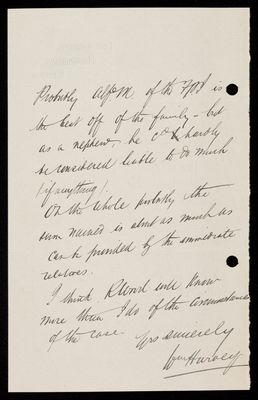 Probably Alf. M. of the FO is
the best off of the family - but
as a nephew, he cd hardly
be considered liable to do much
(if anything).
On the whole probably the
sum named is about as much as
can be provided by the immediate
relatives.
I think will know
more than I do of the circumstances
of the case.
Yrs sincerely
Wm Harvey